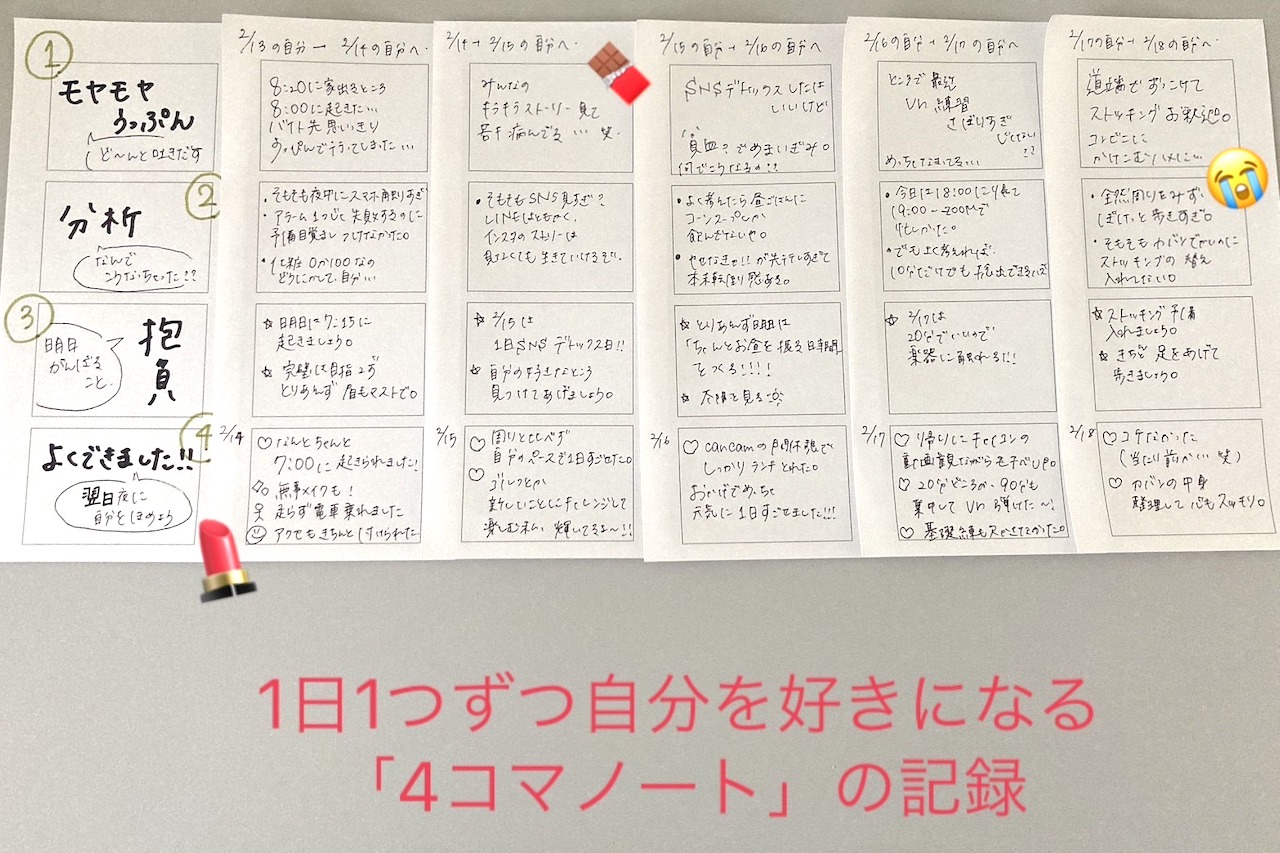 ①
モヤモヤ
うっぷん
ど〜んと吐きだす
②
分析
なんで
こうなっちゃった!?
③
抱負
明日
がんばる
こと。
④
よくできました!!
翌日夜に
自分をほめよう
2/13の自分→2/14の自分へ.
8:20に家出るところ
8:00に起きた…
バイト先思いっきり
すっぴんで行ってしまった…
・そもそも夜中にスマホ再見すぎ
・アラーム1つじゃ失敗するのに
予備目覚まし つけてなかった。
・化粧0か100なの
どうにかして、自分…
☆明日は7:15に
起きましょう。
☆完璧は目指さず
とりあえず眉もマストで。
2/14
♡なんとちゃんと
7:00に起きられました!
無事メイクも!
走らず電車乗れました
アクセもきちんと付けられた
2/14→2/15の自分へ.
みんなの
キラキラストーリー見て
若干病んでる…笑.
・そもそもSNS見すぎ?
LINEはともかく、
インスタのストーリーは
見なくても生きていけるぞ。
☆2/15は
1日SNSデトックス日!!
☆自分の好きなところ
見つけてあげましょう。
2/15
♡周りと比べず
自分のペースで1日すごせた。
♡ゴルフとか
新しいことにチャレンジして
楽しむ私、輝してるよ〜!!
2/15の自分→2/16の自分へ
SNSデトックスしたは
いいけど
貧血?でめまいぎみ。
何でこうなるの!?
・よく考えたら昼ごはんに
コーンスープしか
飲んでないや。
・やせなきゃ!!が先行しすぎて
本末転倒り感ある。
☆とりあえず明日は
「ちゃんとお昼を採る日時間」
をつくる!!!!
☆太陽を見る
2/16
♡cancamの門休張で
しっかりランチとれた。
おかげでめっちゃ
元気に1日すごせました!!!
2/16の自分→2/17の自分へ
ところで最近
Vn 練習
さぼりすぎ
じゃない
??
めっちゃなまってる…
・今日は18:00に帰って
19:00〜ZOOMで
忙しかった。
・でもよく考えれば、
10分だけでも音出できるハズ
☆2/17は
20分でいいので
楽器に触れるだ!!
2/17
♡帰りにチャイコンの
動画観ながらモチベUP。
♡20分どころか、90分も
集中してVn弾けた〜!
♡基礎練も欠かさなかった。
2/17の自分→2/18の自分へ.
道端ですっこけて
ストッキングお釈迦。
コンビニに
かけこむハメに…
・全然周りをみず、
ぼけっと歩きすぎ。
・そもそもカバンでかいのに
ストッキングの替え
入れてない。
☆ストッキング予備
入れましょう。
☆きちんと足をあげて
歩きましょう。
2/18
♡コケなかった
(当たり前か…笑)
♡カバンの中身
整理して心もスッキリ。
1日1つずつ自分を好きになる
「4コマノート」の記録